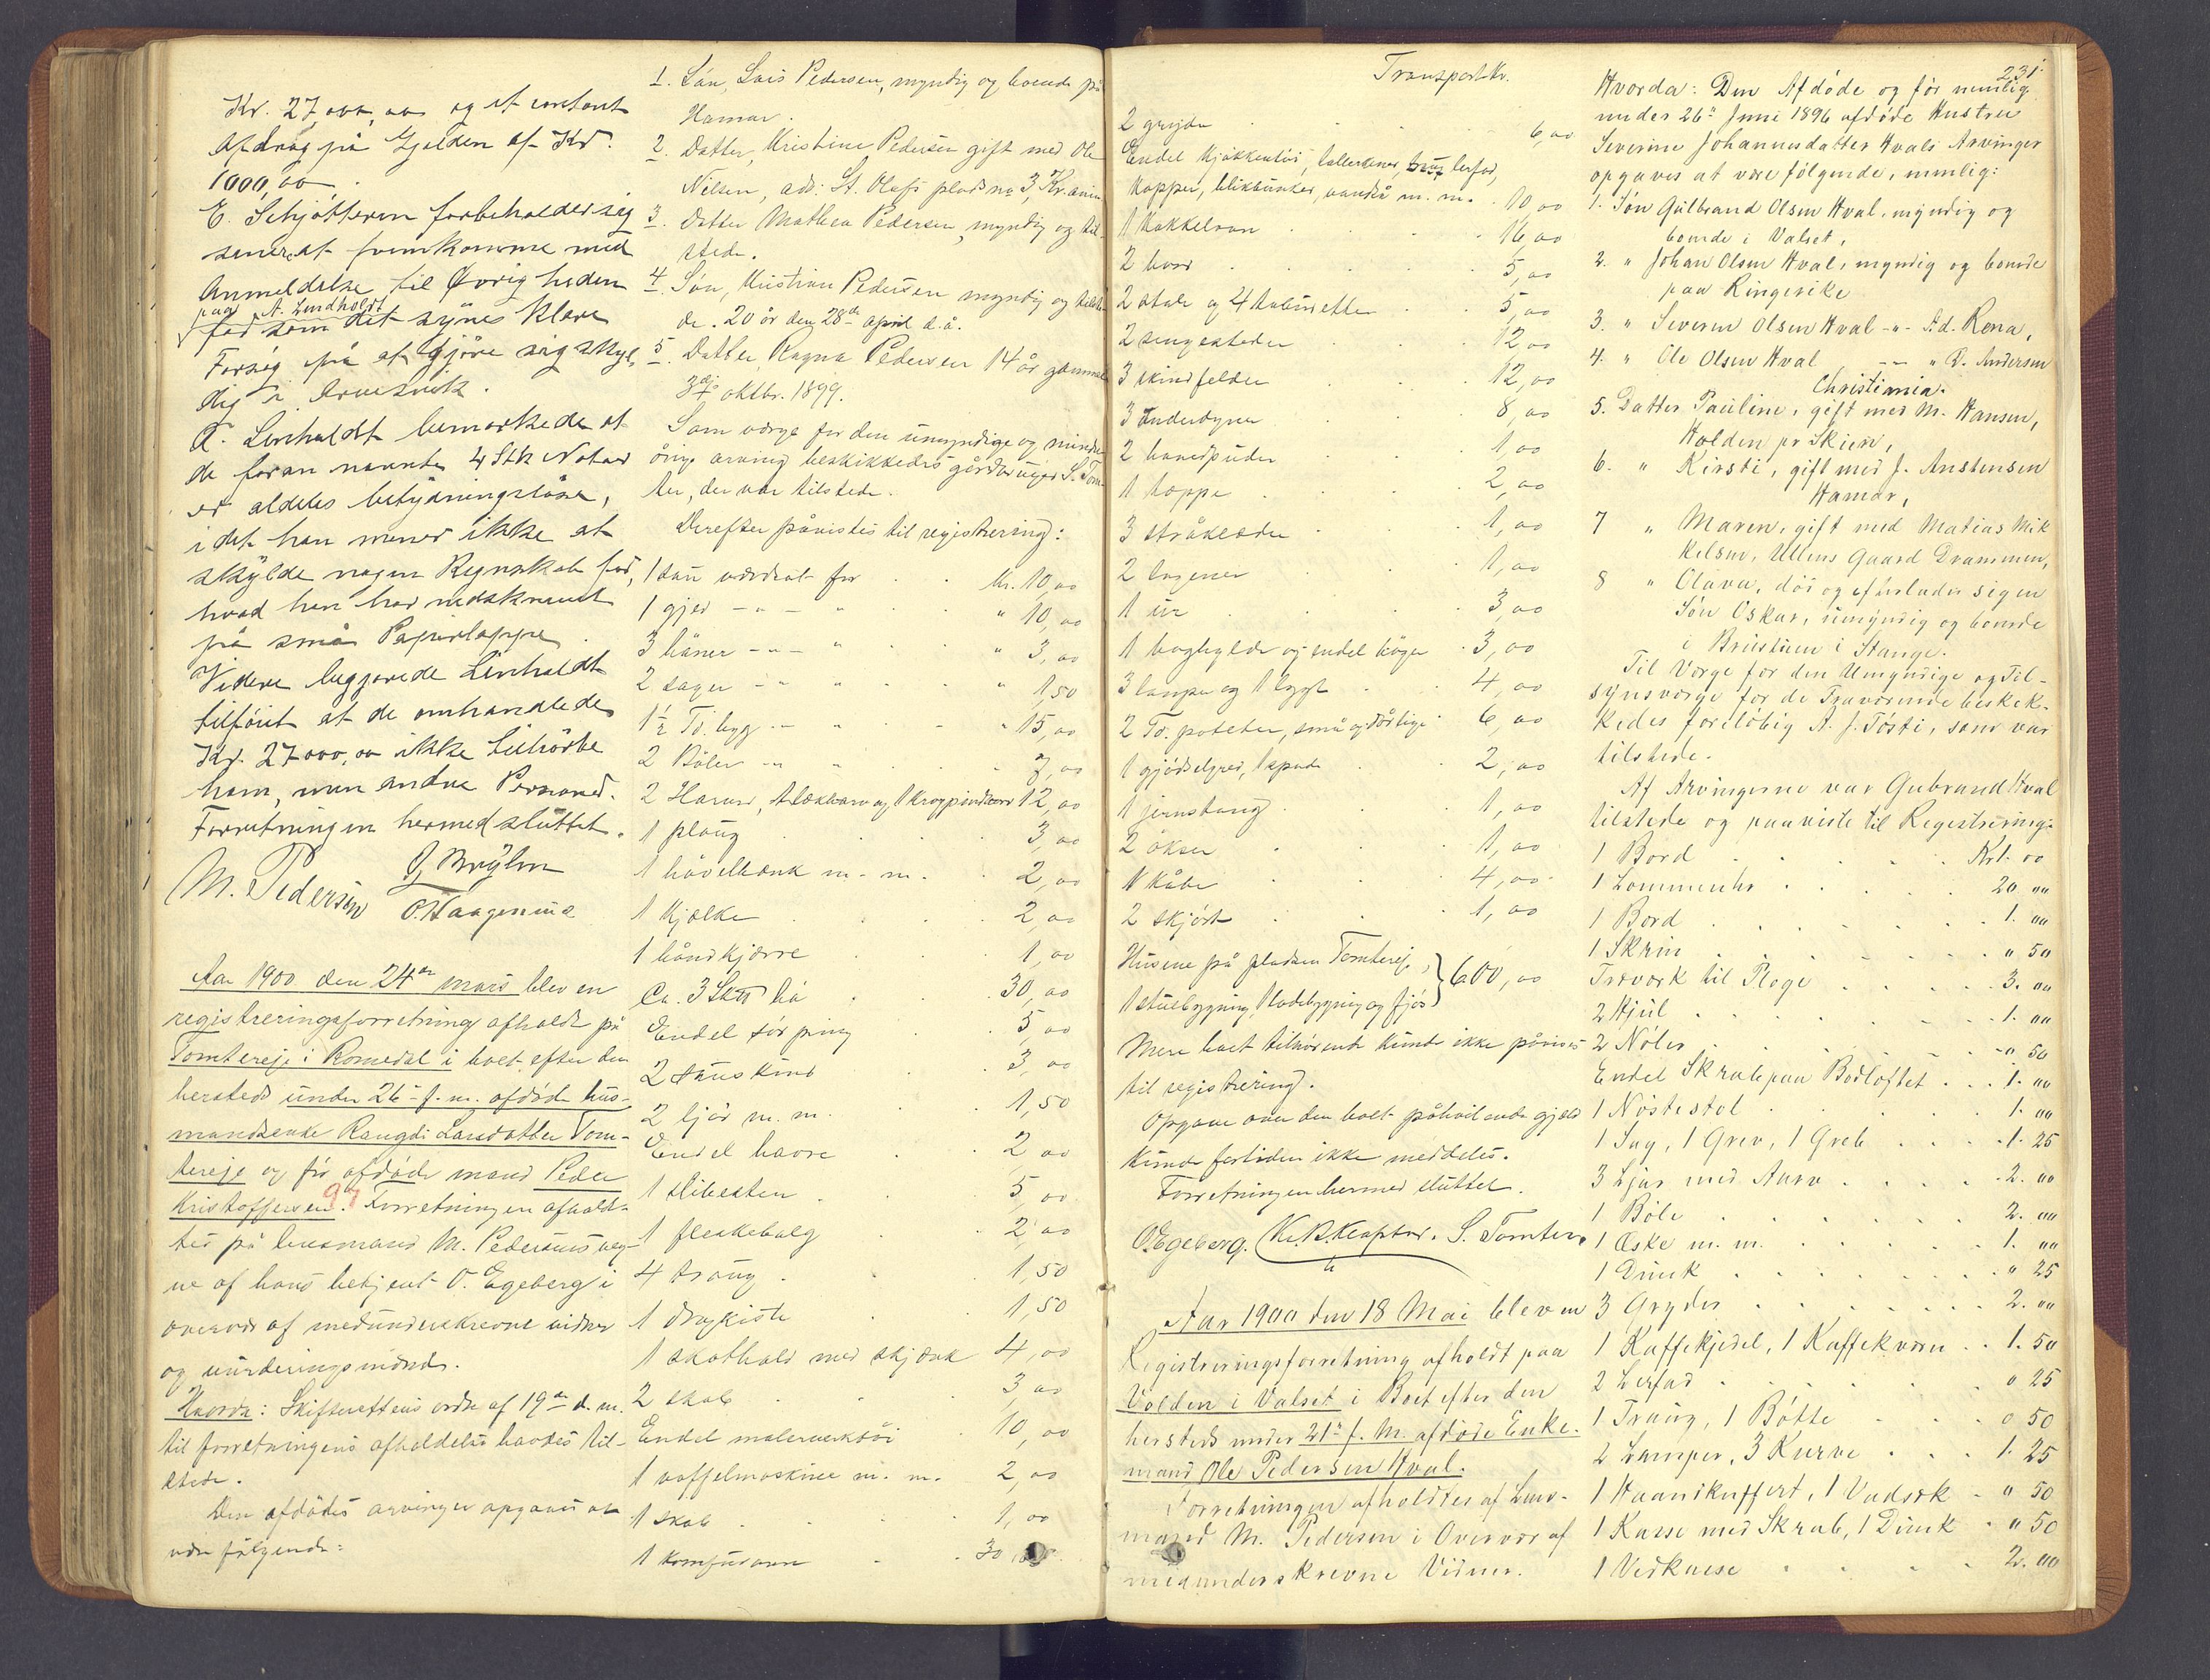 Kr. 27,000,00 og et contant
Afdrag på Gjelden af Kr.
1000,00.
E. Schjötteren forbeholder sig
senere at fremkomme med
Anmeldelse til Øvrigheden
paa A. Lindholdt
fad som det synes klare
Forsøg på at gjöre sig skyl-
dig i
A. Linholdt bemærkede at
de foran nævnte 4 Stk Notar
er aldeles betydningslöse,
idet han mener ikke at
skylde nogen Regnskab for,
hvad han har nedskrevet
på små Papirlapper.
Videre begjærede Linholdt
tilföiet at de omhandlede
Kr. 27000,00 ikke tilhörte
ham, men andre Personer.
Forretningen hermed sluttet.
M. Pedersen
Aar 1900 den 24de mars blev en
registreringsforretning afholdt på
Tomtereje i Romedal i boet efter den
hersteds under 26 f. m. afdöde hus-
mandsenke Rangdi Larsdatter Tom-
tereje og för afdöde mand Peder
Kristoffersen. Forretningen afhold-
97
tes på lensmand M. Pedersens veg-
ne af hans betjent O. Egeberg i
overvær af medunderskrevne vidner
og vurderingsmænd.
Hvorda: Skifterettens ordre af 19de d. m.
til forretningens afholdelse havdes til-
stede.
Den afdödes arvinger opgaves at
være fölgende:
1. Sön, Lars Pedersen, myndig og boende på
Hamar.
2. Datter, Kristine Pedersen gift med Ole
Nilsen, ads: St. Olafs plads no 3, Kr.ania
3. Datter Mathea Pedersen, myndig og til-
stede.
4. Sön, Kristian Pedersen myndig og tilste-
de. 20 år den 28de april d. å.
5. Datter Ragna Pedersen 14 år gammel
3die oktbr. 1899.
Som værge for den umyndige og mindre-
årige arving beskikkedes gårdbruger S. Tom-
ter, der var tilstede.
Derefter påvistes til registrering:
1 sau værdsat for kr. 10,00
1 gjed -"- " " 10,00
3 höner -"- " " 3,00
2 sager -"- " " 1,50
1½ Td. byg -"- " " 15,00
2 Böler -"- " 3,00
2 Harver, 1 og 1 krogpindharv 12,00
1 ploug 3,00
1 hövelbænk m. m. 2,00
1 kjælke 2,00
1 håndkjærre 1,00
Ca. 3 Sk℔ hö 30,00
Endel tör 5,00
2 sauskind 3,00
2 ljår m. m. 1,50
Endel havre 2,00
1 slibesten 5,00
1 fleskebalg 2,00
4 traug 1,50
1 dragkiste 1,50
1 skathald med skjænk 4,00
2 skab 3,00
Endel malerverktöi 10,00
1 vaffelmaskine m. m. 2,00
1 skab 1,00
1 komfurovn 30,00
Transport Kr.
2 gryder 6,00
Endel kjökkentöi, tallerkener, lerfad,
kopper, blikbunker, m. m. 10,00
1 kakkelovn 16,00
2 bord 5,00
2 stole og 4 tabouretter 5,00
2 sengesteder 12,00
3 skindfelder 12,00
3 underdyner 8,00
2 hovedpuder 1,00
1 teppe 2,00
3 stråkeder 1,00
2 lagener 1,00
1 ur 3,00
1 boghylde og endel böger 3,00
3 lamper og 1 lygt 4,00
2 Td. poteter, små og dårlige 6,00
1 gjödselgreb, 1 spade 2,00
1 jernstang 1,00
2 økser 1,00
1 kåbe 4,00
2 skjört 1,00
Husene på pladsen Tomtereje,
1 stuebygning, 1 ladebygning og fjös } 600,00
Mere boet tilhörende kunde ikke påvises
til registrering.
Opgave over den boet påhvilende gjæld
kunde fortiden ikke meddeles.
Forretningen hermed sluttet.
O. Egeberg. S. Tomter.
Aar 1900 den 18 Mai blev en
Registreringsforretning afholdt paa
Volden i Valset i Boet efter den
hersteds under 21de f. M. afdöde Enke-
mand Ole Pedersen Hval.
Forretningen afholdtes af Lens-
mand M. Pedersen i Overvær af
medunderskrevne Vidner.
231
Hvorda: Den Afdöde og för nemlig
under 26de Juni 1896 afdöde Hustru
Severine Johannesdatter Hvals Arvinger
opgaves at være fölgende, nemlig:
1. Sön Gulbrand Olsen Hval, myndig og
boende i Valset,
2. " Johan Olsen Hval, myndig og boende
paa Ringerike
3. " Severin Olsen Hval -"- Ad. Rena,
4. " Ole Olsen Hval -"- " D. Andersen
Christiania.
5. Datter Pauline, gift med M. Hansen,
Holden pr Skien,
6. " Kirsti, gift med J. Anstensen
Hamar,
7 " Maren, gift med Matias Mik
kelsen, Ullens Gaard Drammen,
8 " Olava, död og efterlader sig en
Sön Oskar, umyndig og boende
i Brustuen i Stange.
Til Værge for den Umyndige og Til-
synsværge for de Fraværende beskik-
kedes foreløbig A. J. Tösti, som var
tilstede.
Af Arvingerne var Gubrand Hval
tilstede og paaviste til Registrering:
1 Bord Kr 1. 00
1 Lommeuhr 20. 00
1 Bord 1. 00
1 Skrin " 50
Træværk til Ploge 3. 00
2 Hjul 1. 00
2 Nöler " 50
Endel Skrab paa Bodloftet 1. 00
1 Nöstestol 1. 00
1 Sag, 1 Grev, 1 Greb 1. 25
3 Ljar med Aurv 2. 00
1 Böle 2. 00
1 Æske m. m. 1. 00
1 Dunk " 25
3 Gryder 2. 00
1 Kaffekjedel, 1 Kaffekværn 1. 50
2 Lerfad " 25
1 Traug, 1 Bötte " 50
2 Lamper, 3 Kurve 1. 25
1 Haandkuffert, 1 Vadsæk " 50
1 Kasse med Skrab, 1 Dunk " 50
1 Vedkasse 2. 00